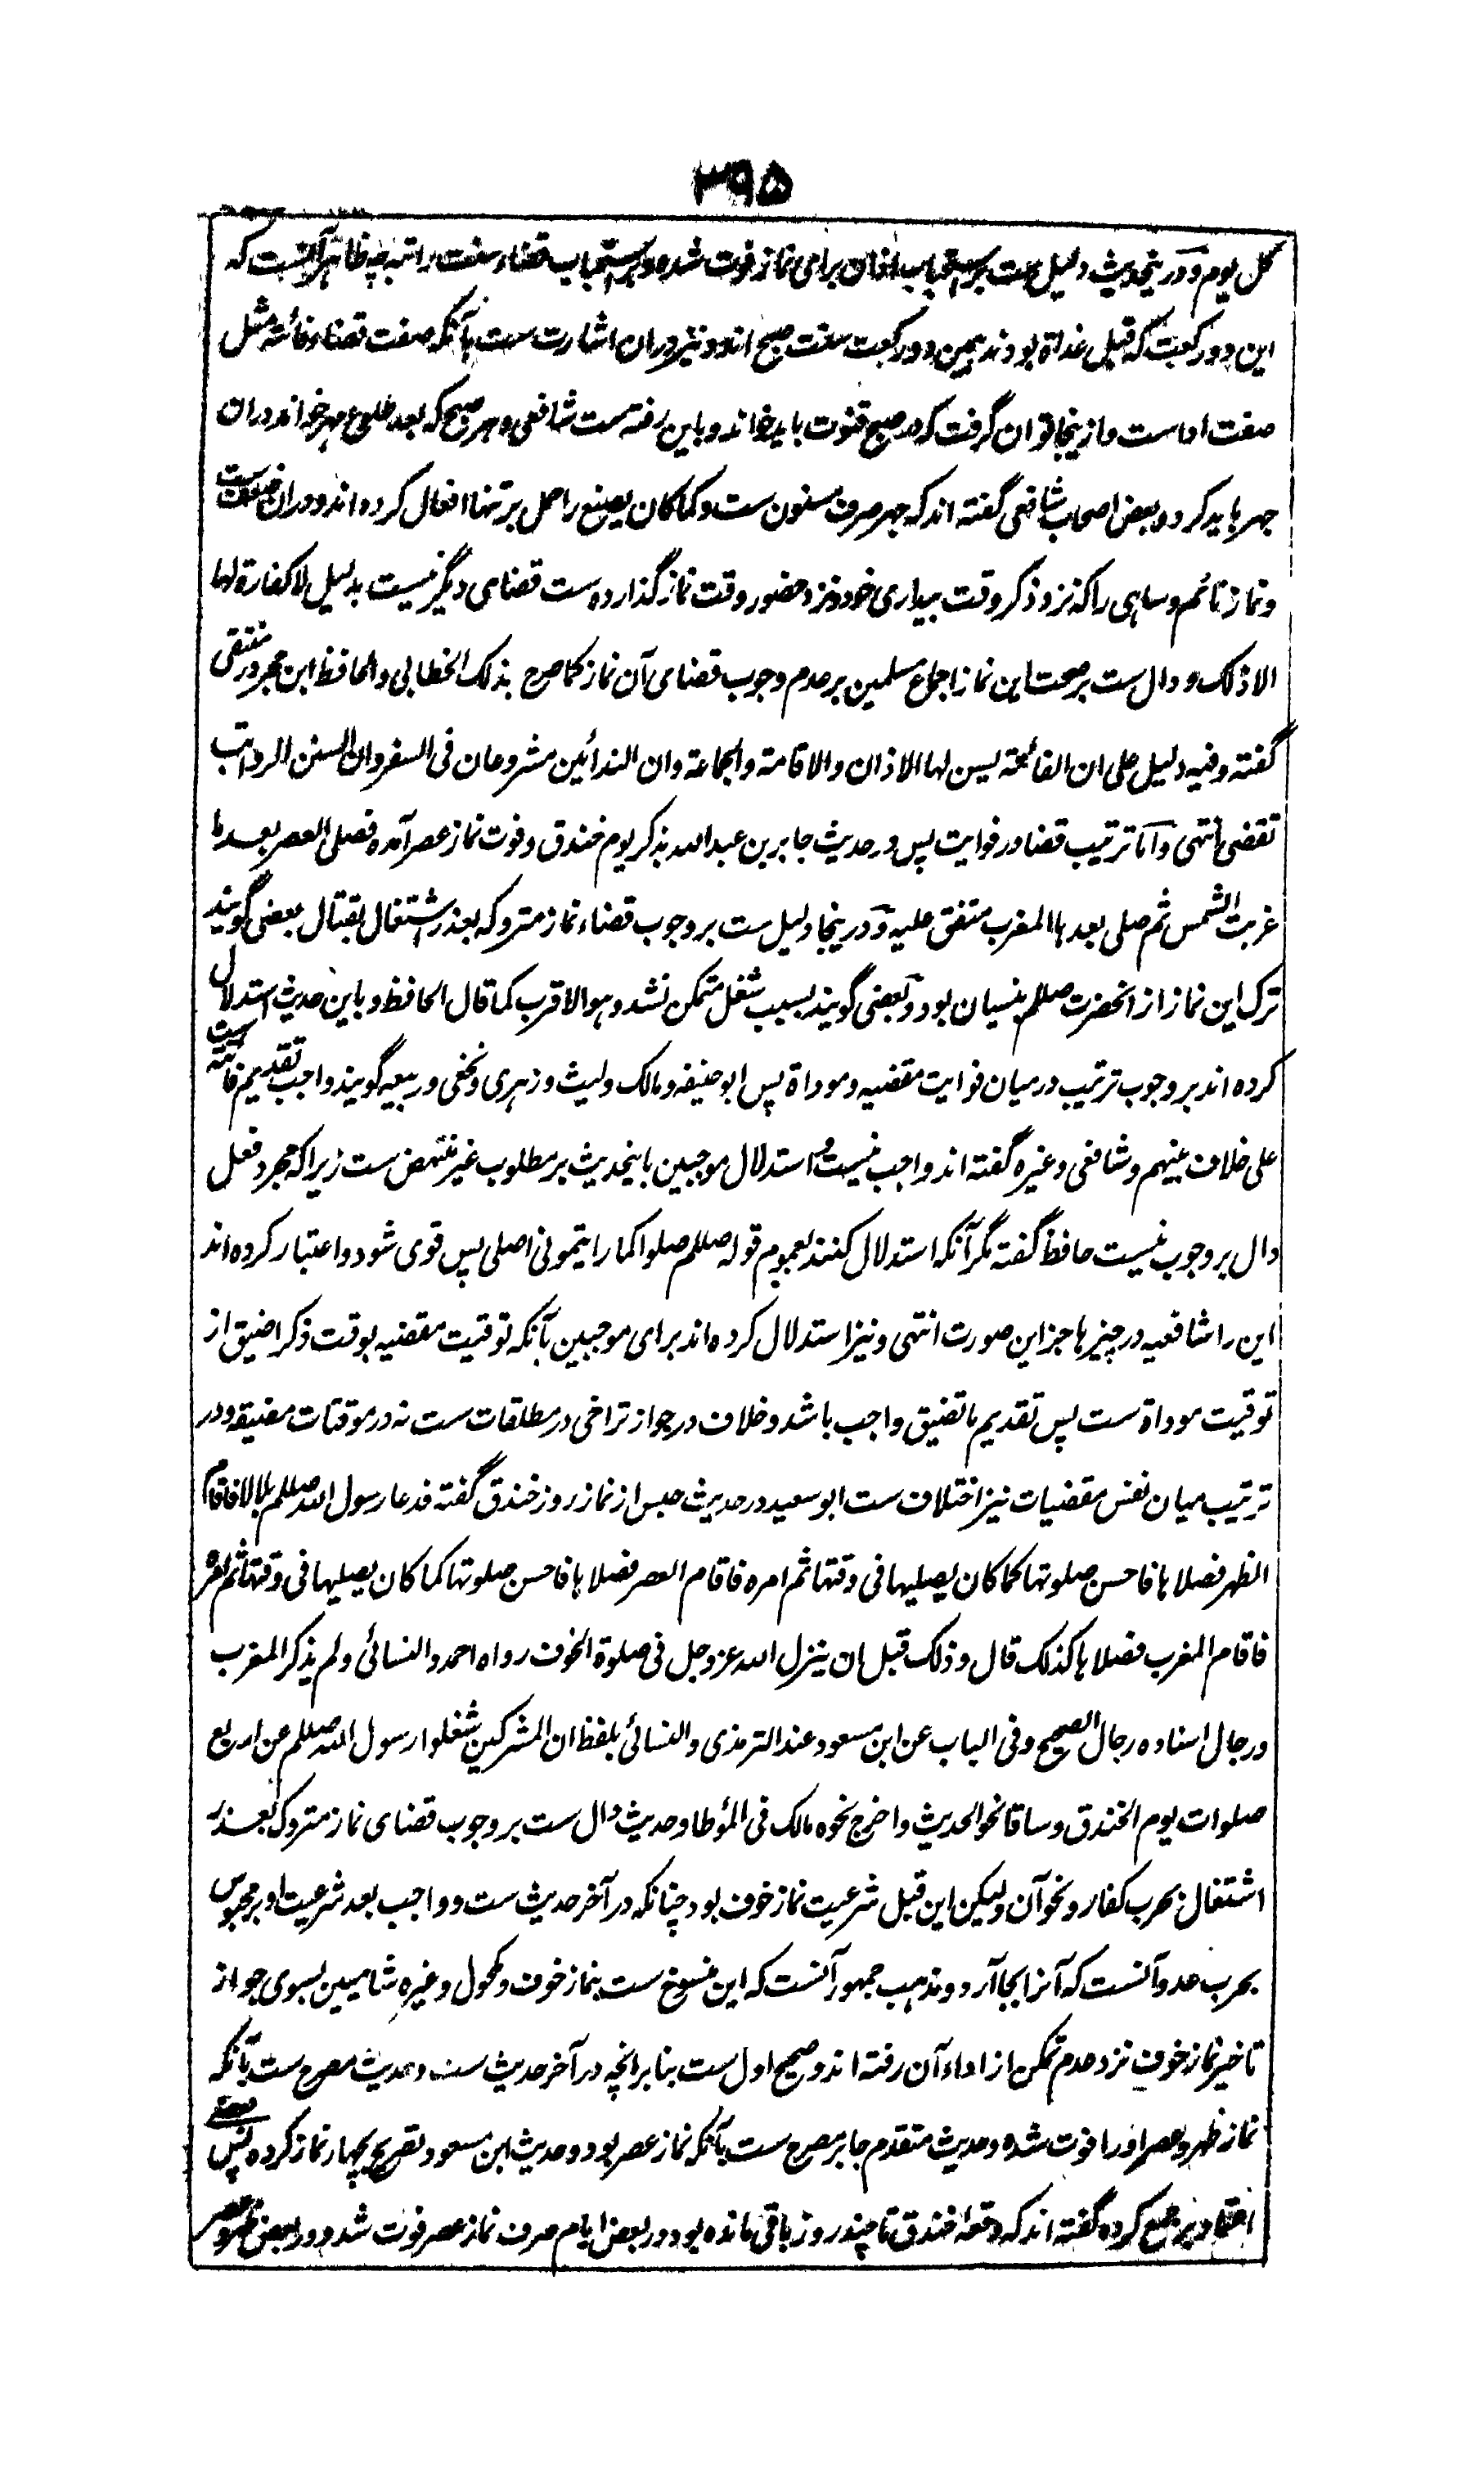 ۳۹۵
کل یوم و درینحدیث دلیل ست بر استحباب اذان برای نماز فوت شده و بر استحباب قضاء سنت راتبه چه ظاهر آنست که
این دو رکعت که قبل غداة بودند همین دو رکعت سنت صبح اند و نیز دران اشارت ست بآنکه صفت قضاء فائته مثل
صفت اداست و ازینجا توان گرفت که در صبح قنوت باید خواند و باین رفته ست شافعی و هر صبح که بعد طلوع مهر خواند دران
جهر باید کرد و بعض اصحاب شافعی گفته اند که جهر صرف مسنون ست و کما کان یصنع را حمل بر تنها افعال کرده اند و دران ضعف ست
و نماز نائم و ساهی را که نزد ذکر وقت بیداری خود و نزد حضور وقت نماز گذارده ست قضای دیگر نیست بدلیل لا کفارة لها
الا ذلک و دال ست بر صحت این نماز اجماع مسلمین بر عدم وجوب قضای آن نماز کما صرح بذلک الخطابی و الحافظ ابن حجر در منتقی
گفته و فیه دلیل علی ان الفائتة یسن لها الاذان و الاقامة و الجماعة و ان الندائین مشروعان فی السفر و ان السنن الرواتب
تقضی انتهی و اما ترتیب قضا در فوایت پس در حدیث جابر بن عبد الله بذکر یوم خندق و فوت نماز عصر آمده فصلی العصر بعد ما
غربت الشمس ثم صلی بعدها المغرب متفق علیه و درینجا دلیل ست بر وجوب قضاء نماز متروکه بعذر اشتغال بقتال بعضی گویند
ترک این نماز از انحضرت صللم بنسیان بود و بعضی گویند بسبب شغل متمکن نشد و هو الاقرب کما قال الحافظ و باین حدیث استدلال
کرده اند بر وجوب ترتیب درمیان فوایت مقضیه و موداة پس ابو حنیفه و مالک و لیث و زهری و نخعی و ربیعه گویند واجب ست تقدیم فائته
علی خلاف بینهم و شافعی و غیره گفته اند واجب نیست و استدلال موجبین باینحدیث بر مطلوب غیر منتهض ست زیرا که مجرد فعل
دال بر وجوب نیست حافظ گفته مگر آنکه استدلال کنند بعموم قوله صللم صلوا کما رایتمونی اصلی پس قوی شود و اعتبار کرده اند
این را شافعیه در چیزها جز این صورت انتهی و نیز استدلال کرده اند برای موجبین بآنکه توقیت مقضیه بوقت ذکر اضیق از
توقیت موداة ست پس تقدیم ما تضیق واجب باشد و خلاف در جواز تراخی در مطلقات ست نه در موقتات مضیقه و در
ترتیب میان نفس مقضیات نیز اختلاف ست ابو سعید در حدیث حبس از نماز روز خندق گفته فدعا رسول الله صللم بلالا فاقام
الظهر فصلاها فاحسن صلوتها کما کان یصلیها فی وقتها ثم امره فاقام العصر فصلاها فاحسن صلوتها کما کان یصلیها فی وقتها ثم امره
فاقام المغرب فصلاها کذلک قال و ذلک قبل ان ینزل الله عز و جل فی صلوة الخوف رواه احمد و النسائی و لم یذکر المغرب
و رجال اسناده رجال الصحیح و فی الباب عن ابن مسعود عند الترمذی و النسائی بلفظ ان المشرکین شغلوا رسول الله صللم عن اربع
صلوات یوم الخندق و ساقا نحو الحدیث و اخرج نحوه مالک فی المؤطا و حدیث دال ست بر وجوب قضای نماز متروک بعذر
اشتغال بحرب کفار و نحو آن ولیکن این قبل شرعیت نماز خوف بود چنانکه در آخر حدیث ست و واجب بعد شرعیت او بر محبوس
بحرب عدو آنست که آنرا بجا آرد و مذهب جمهور آنست که این منسوخ ست بنماز خوف و مکحول و غیره شامیین بسوی جواز
تاخیر نماز خوف نزد عدم تمکن از اداء آن رفته اند و صحیح اول ست بنا برانچه در آخر حدیث ست و حدیث مصرح ست بآنکه
نماز ظهر و عصر او را فوت شده و حدیث متقدم جابر مصرح ست بآنکه نماز عصر بود و حدیث ابن مسعود تصریح بچهار نماز کرده پس بعضی
اعتماد بر جمع کرده گفته اند که وقعهٔ خندق تا چند روز باقی مانده بود در بعض ایام صرف نماز عصر فوت شد و در بعض ظهر و عصر